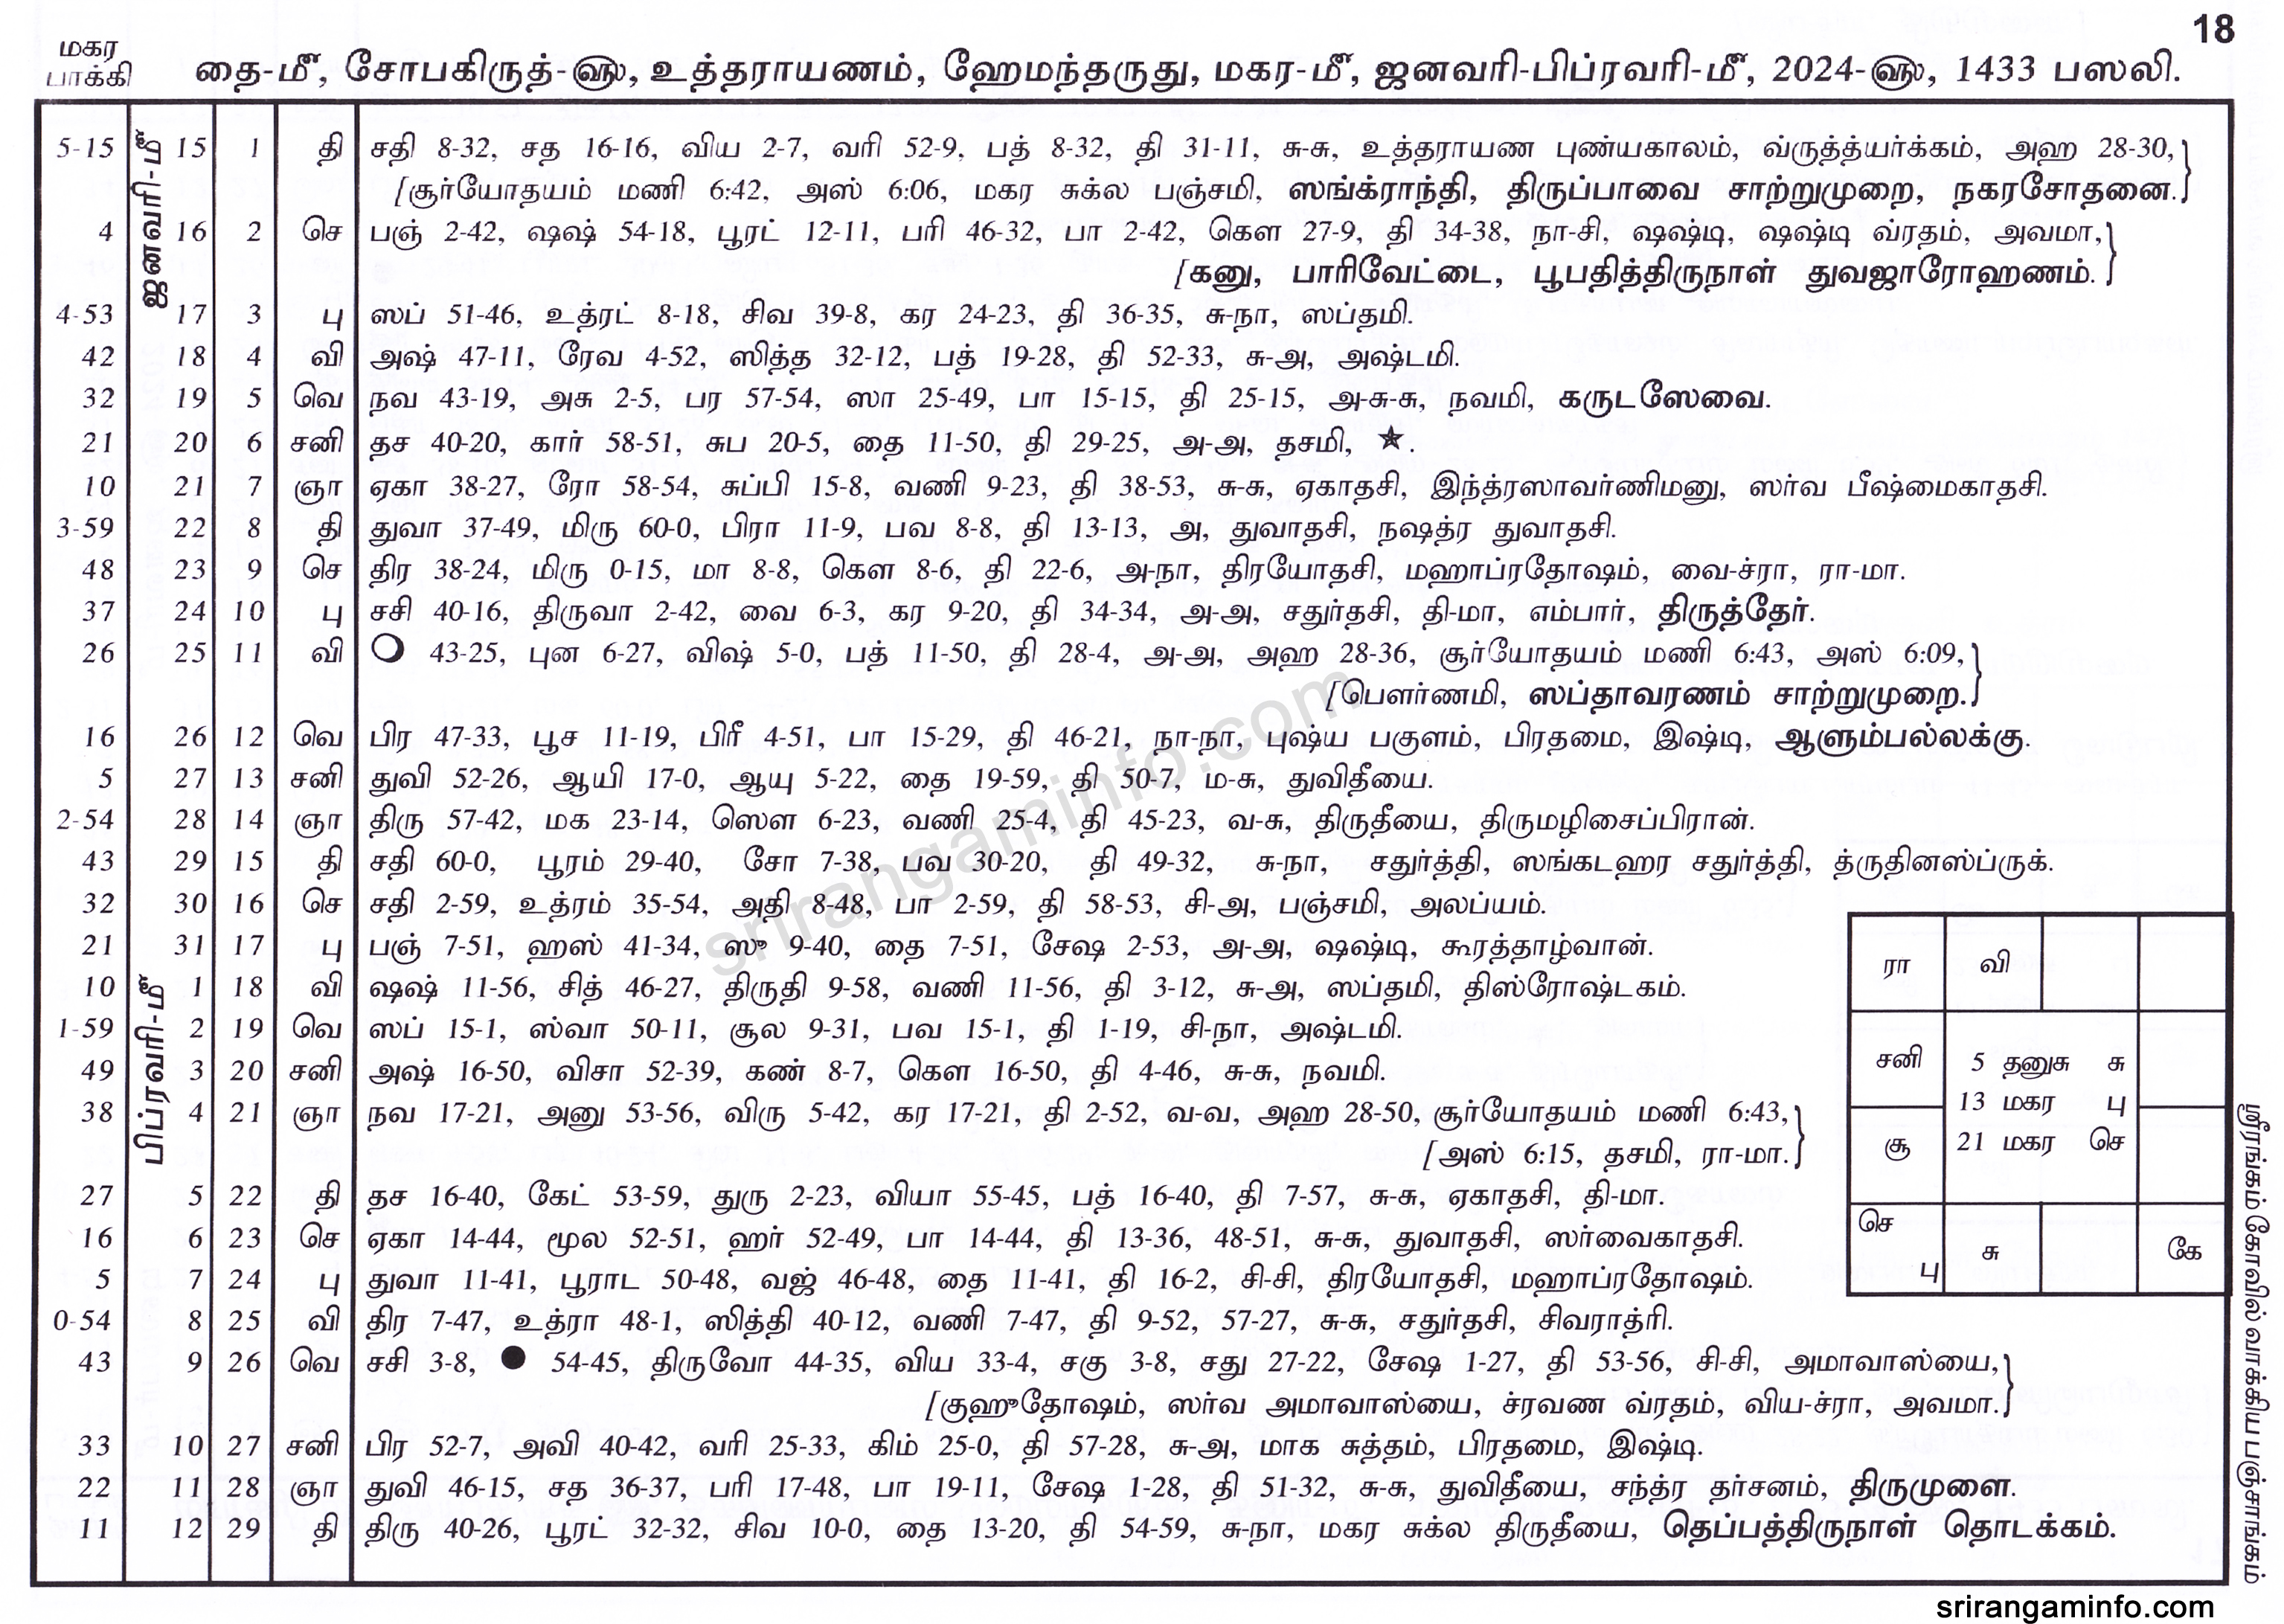 18
மகர
பாக்கி
தை-மீ, சோபகிருத்-௵, உத்தராயணம், ஹேமந்தருது, மகர-மீ, ஜனவரி-பிப்ரவரி-மீ, 2024-௵, 1433 பஸலி.
ஜனவரி-மீ
5-15 15 1 தி சதி 8-32, சத 16-16, விய 2-7, வரி 52-9, பத் 8-32, தி 31-11, சு-சு, உத்தராயண புண்யகாலம், வ்ருத்த்யர்க்கம், அஹ 28-30,}
[சூர்யோதயம் மணி 6:42, அஸ் 6:06, மகர சுக்ல பஞ்சமி, ஸங்க்ராந்தி, திருப்பாவை சாற்றுமுறை, நகரசோதனை.}
4 16 2 செ பஞ் 2-42, ஷஷ் 54-18, பூரட் 12-11, பரி 46-32, பா 2-42, கௌ 27-9, தி 34-38, நா-சி, ஷஷ்டி, ஷஷ்டி வ்ரதம், அவமா,}
[கனு, பாரிவேட்டை, பூபதித்திருநாள் துவஜாரோஹணம்.}
4-53 17 3 பு ஸப் 51-46, உத்ரட் 8-18, சிவ 39-8, கர 24-23, தி 36-35, சு-நா, ஸப்தமி.
42 18 4 வி அஷ் 47-11, ரேவ 4-52, ஸித்த 32-12, பத் 19-28, தி 52-33, சு-அ, அஷ்டமி.
32 19 5 வெ நவ 43-19, அசு 2-5, பர 57-54, ஸா 25-49, பா 15-15, தி 25-15, அ-சு-சு, நவமி, கருடஸேவை.
21 20 6 சனி தச 40-20, கார் 58-51, சுப 20-5, தை 11-50, தி 29-25, அ-அ, தசமி, ★.
10 21 7 ஞா ஏகா 38-27, ரோ 58-54, சுப்பி 15-8, வணி 9-23, தி 38-53, சு-சு, ஏகாதசி, இந்த்ரஸாவர்ணிமனு, ஸர்வ பீஷ்மைகாதசி.
3-59 22 8 தி துவா 37-49, மிரு 60-0, பிரா 11-9, பவ 8-8, தி 13-13, அ, துவாதசி, நஷத்ர துவாதசி.
48 23 9 செ திர 38-24, மிரு 0-15, மா 8-8, கௌ 8-6, தி 22-6, அ-நா, திரயோதசி, மஹாப்ரதோஷம், வை-ச்ரா, ரா-மா.
37 24 10 பு சசி 40-16, திருவா 2-42, வை 6-3, கர 9-20, தி 34-34, அ-அ, சதுர்தசி, தி-மா, எம்பார், திருத்தேர்.
26 25 11 வி 43-25, புன 6-27, விஷ் 5-0, பத் 11-50, தி 28-4, அ-அ, அஹ 28-36, சூர்யோதயம் மணி 6:43, அஸ் 6:09,}
[பௌர்ணமி, ஸப்தாவரணம் சாற்றுமுறை.}
16 26 12 வெ பிர 47-33, பூச 11-19, பிரீ 4-51, பா 15-29, தி 46-21, நா-நா, புஷ்ய பகுளம், பிரதமை, இஷ்டி, ஆளும்பல்லக்கு.
5 27 13 சனி துவி 52-26, ஆயி 17-0, ஆயு 5-22, தை 19-59, தி 50-7, ம-சு, துவிதீயை.
2-54 28 14 ஞா திரு 57-42, மக 23-14, ஸௌ 6-23, வணி 25-4, தி 45-23, வ-சு, திருதீயை, திருமழிசைப்பிரான்.
43 29 15 தி சதி 60-0, பூரம் 29-40, சோ 7-38, பவ 30-20, தி 49-32, சு-நா, சதுர்த்தி, ஸங்கடஹர சதுர்த்தி, த்ருதினஸ்ப்ருக்.
32 30 16 செ சதி 2-59, உத்ரம் 35-54, அதி 8-48, பா 2-59, தி 58-53, சி-அ, பஞ்சமி, அலப்யம்.
21 31 17 பு பஞ் 7-51, ஹஸ் 41-34, ஸு 9-40, தை 7-51, சேஷ 2-53, அ-அ, ஷஷ்டி, கூரத்தாழ்வான்.
பிப்ரவரி-மீ
10 1 18 வி ஷஷ் 11-56, சித் 46-27, திருதி 9-58, வணி 11-56, தி 3-12, சு-அ, ஸப்தமி, திஸ்ரோஷ்டகம்.
1-59 2 19 வெ ஸப் 15-1, ஸ்வா 50-11, சூல 9-31, பவ 15-1, தி 1-19, சி-நா, அஷ்டமி.
49 3 20 சனி அஷ் 16-50, விசா 52-39, கண் 8-7, கௌ 16-50, தி 4-46, சு-சு, நவமி.
38 4 21 ஞா நவ 17-21, அனு 53-56, விரு 5-42, கர 17-21, தி 2-52, வ-வ, அஹ 28-50, சூர்யோதயம் மணி 6:43,}
[அஸ் 6:15, தசமி, ரா-மா.}
27 5 22 தி தச 16-40, கேட் 53-59, துரு 2-23, வியா 55-45, பத் 16-40, தி 7-57, சு-சு, ஏகாதசி, தி-மா.
16 6 23 செ ஏகா 14-44, மூல 52-51, ஹர் 52-49, பா 14-44, தி 13-36, 48-51, சு-சு, துவாதசி, ஸர்வைகாதசி.
5 7 24 பு துவா 11-41, பூராட 50-48, வஜ் 46-48, தை 11-41, தி 16-2, சி-சி, திரயோதசி, மஹாப்ரதோஷம்.
0-54 8 25 வி திர 7-47, உத்ரா 48-1, ஸித்தி 40-12, வணி 7-47, தி 9-52, 57-27, சு-சு, சதுர்தசி, சிவராத்ரி.
43 9 26 வெ சசி 3-8, ● 54-45, திருவோ 44-35, விய 33-4, சகு 3-8, சது 27-22, சேஷ 1-27, தி 53-56, சி-சி, அமாவாஸ்யை,}
[குஹுதோஷம், ஸர்வ அமாவாஸ்யை, ச்ரவண வ்ரதம், விய-ச்ரா, அவமா.}
33 10 27 சனி பிர 52-7, அவி 40-42, வரி 25-33, கிம் 25-0, தி 57-28, சு-அ, மாக சுத்தம், பிரதமை, இஷ்டி.
22 11 28 ஞா துவி 46-15, சத 36-37, பரி 17-48, பா 19-11, சேஷ 1-28, தி 51-32, சு-சு, துவிதீயை, சந்த்ர தர்சனம், திருமுளை.
11 12 29 தி திரு 40-26, பூரட் 32-32, சிவ 10-0, தை 13-20, தி 54-59, சு-நா, மகர சுக்ல திருதீயை, தெப்பத்திருநாள் தொடக்கம்.
ரா வி
சனி 5 தனுசு சு
13 மகர பு
சூ 21 மகர செ
செ
பு சு கே
ஸ்ரீரங்கம் கோவில் வாக்கிய பஞ்சாங்கம்
srirangaminfo.com
srirangaminfo.com